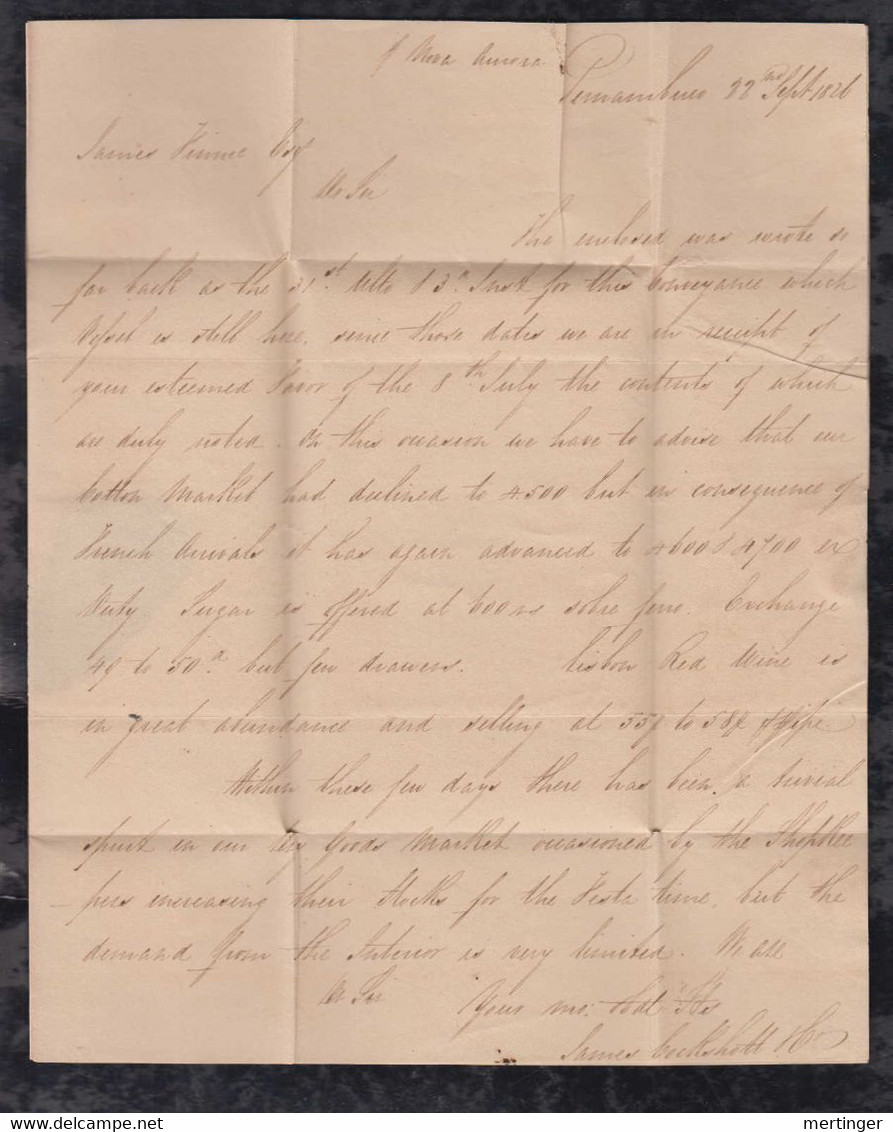 p Nova Aurora
Pernambuco 22nd Sept 1826
James Esqr
Dr Sir
The enclosed was wrote so
far back as the 31st Ulto & 3d Inst for this Conveyance which
Vessel is still here, since those dates we are in receipt of
your esteemed Favor of the 8th July the contents of which
are duly noted. On this occasion we have to advise that our
Cotton Market had declined to 4500 but in consequence of
French Arrivals it has again advanced to 4600 & 4700 ex
Duty Sugar is offered at 600 rs sobre ferro. Exchange
49 to 50d but few drawers. Lisbon Red Wine is
in great abundance and selling at 55$ to 58$ p Pipe
Within these few days there has been a trivial
spurt in our Dry Goods Market occasioned by the Shopkee
-pers increasing their Stocks for the Festa time, but the
demand from the Interior is very limited. We are
Dr Sir
Your mo: Obdt Sts
James Cockshott & Co
delcampe.net
mertinger